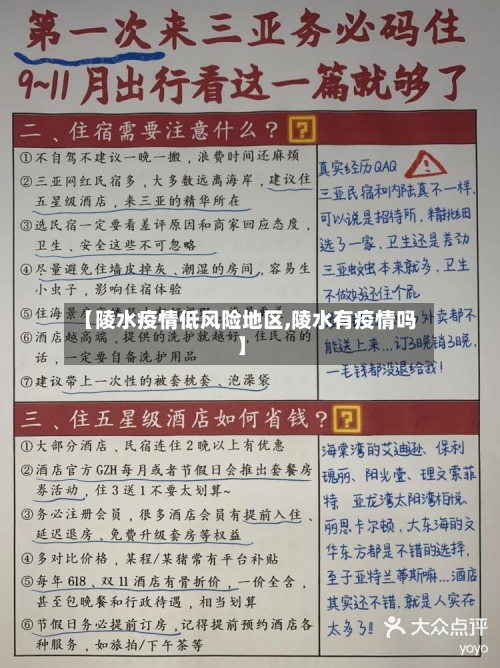 第一次来三亚务必码住
9~11月出行看这一篇就够了
二、住宿需要注意什么？?
①不自驾不建议一晚一搬，浪费时间还麻烦
②三亚网红民宿多，大多数远离海岸，建议住
五星级酒店，来三亚的精华所在
③选民宿一定要看差评原因和商家回应态度，
卫生、安全这些不可忽略
④尽量避免住墙皮掉灰、潮湿的房间，容易生
小虫子，影响住宿体验
⑤住海景
⑥酒店越高端，提供的洗护就越好，住民宿的
话，一定要自备洗护用品
⑦建议带上一次性的被套枕套、泡澡袋
真实经历QAQ
三亚民宿和内陆真不一样，
可以说是招待所，精挑细
选了一家，卫生还是差劲
三亚蚊虫本来就多，卫生
不做好还住个屁
外卖都不
能送上来...订3晚销3晚，
一毛钱都没退给我！
【陵水疫情低风险地区,陵水有疫情吗
】
三、住五星级酒店如何省钱？?
①大部分酒店、民宿连住2晚以上有优惠
②酒店官方GZH每月或者节假日会推出套餐房
券活动，住3送1不要太划算~
③务必注册会员，很多酒店会员有提前入住、
延迟退房、免费升级套房等权益
④多对比价格，某程/某猪常有平台补贴
⑤每年618、双11酒店有骨折价，一价全含，
甚至包晚餐和行政待遇，相当划算
⑥节假日务必提前订房，记得提前预约酒店各
种服务，如旅拍/下午茶等
海棠湾的艾迪逊、保利
瑰丽、阳光壹、理文索菲
特 亚龙湾太阳湾柏悦、
丽思卡尔顿，大东海的文
华东方都是不错的选择，
至于亚特兰蒂斯嘛...酒店
其实还不错，就是人实在
太多了!!
大众点评
yoyo